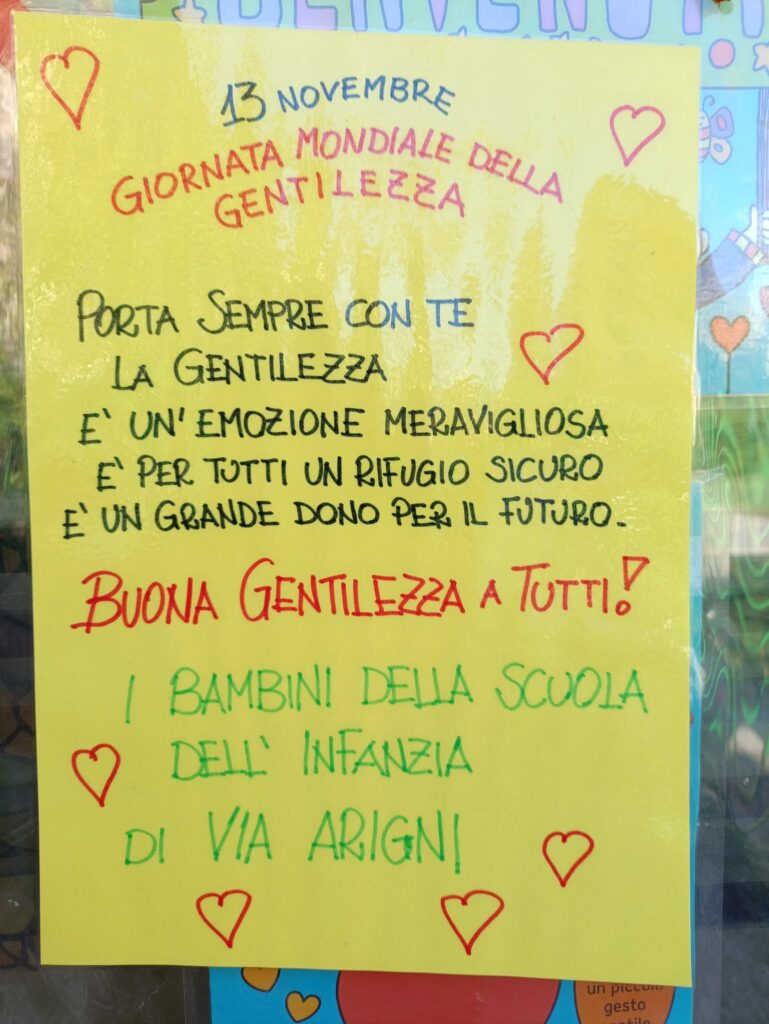 BENVENUTI
13 NOVEMBRE
GIORNATA MONDIALE DELLA
GENTILEZZA
PORTA SEMPRE CON TE
LA GENTILEZZA
E' UN' EMOZIONE MERAVIGLIOSA
E' PER TUTTI UN RIFUGIO SICURO
E' UN GRANDE DONO PER IL FUTURO.
BUONA GENTILEZZA A TUTTI!
I BAMBINI DELLA SCUOLA
DELL' INFANZIA
DI VIA ARIGNI
un piccolo
gesto